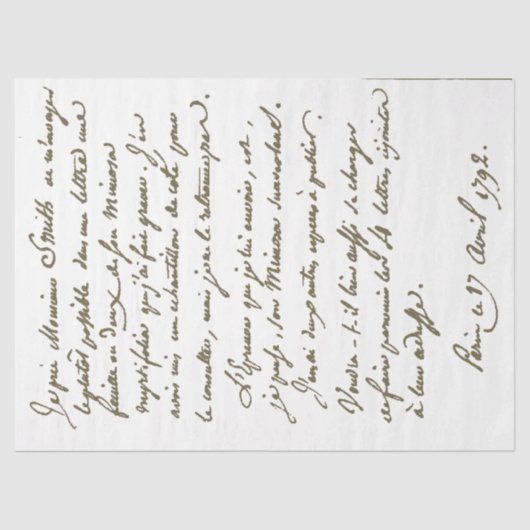 Je prie Monsieur Smith de m'envoyer
le plutôt possible dans une lettre une
feuille ou deux de son Minium
magnifique qu'j'ai fait graver. J'en
avois mis un échantillon de coté pour
le consulter, mais je ne le retrouve pas.
L'Epreuve que je lui envoie, est,
je pense, son Minium
J'en ai deux autres, à publier.
Voudra-t-il bien aussi se charger
de faire parvenir les 4 lettres cy jointes
à leur adresse.
Paris le 17 Avril 1792.